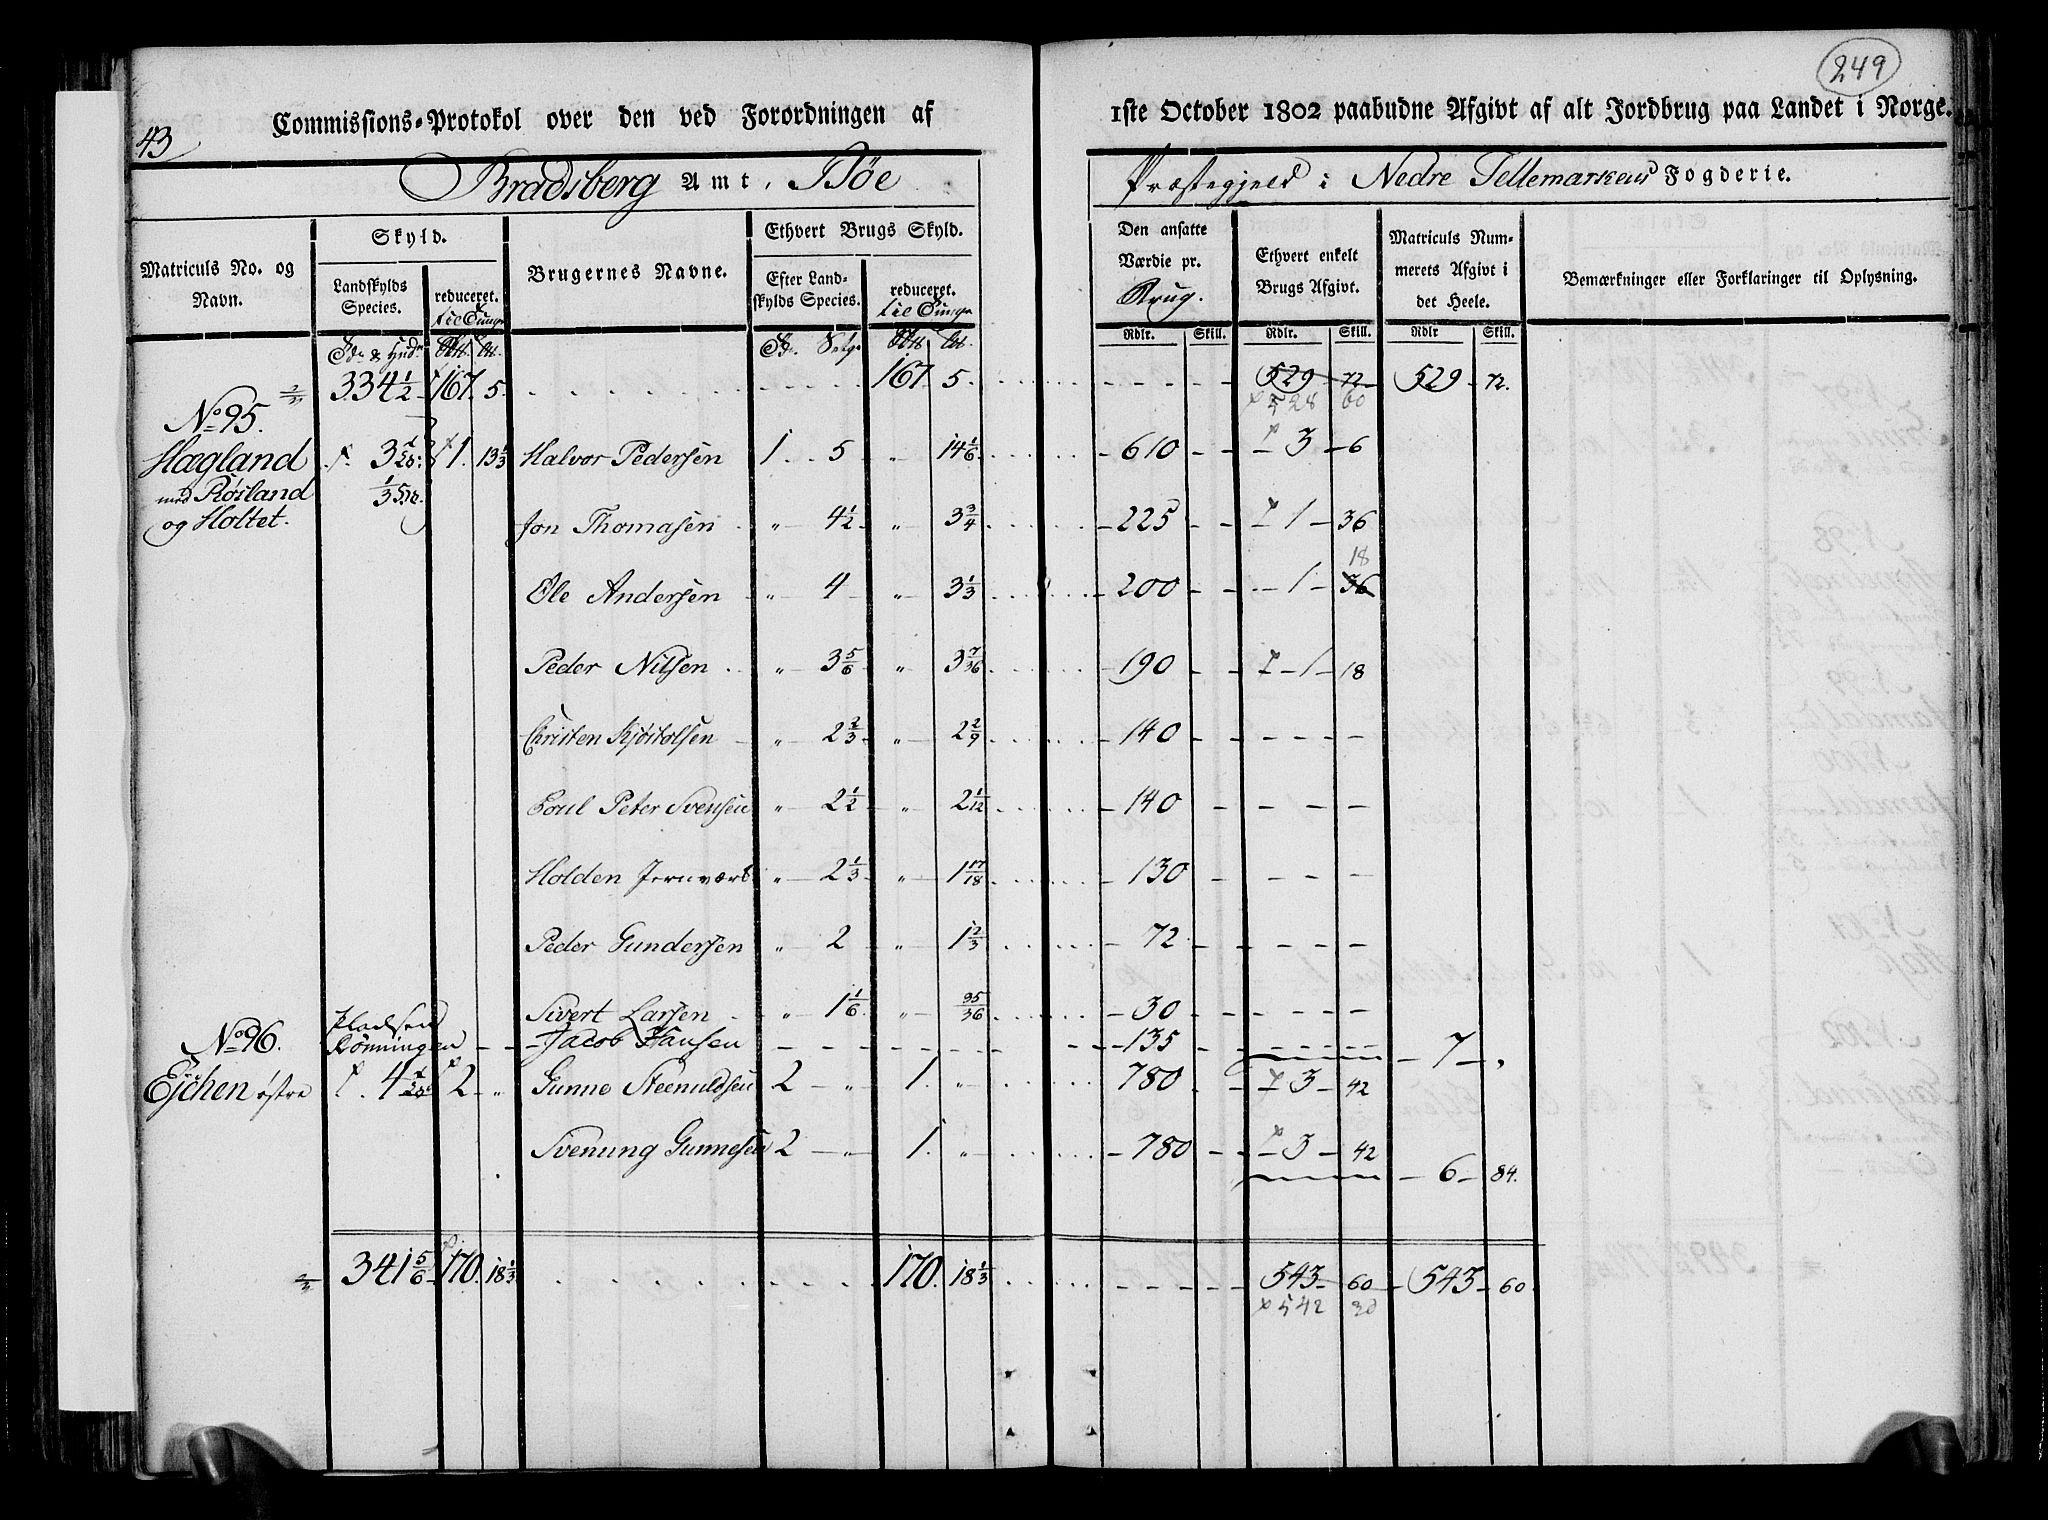 249
43
Commissions-Protokol over den ved Forordningen af 1ste October 1802 paabudne Afgivt af alt Jordbrug paa Landet i Norge.
Bradsberg Amt, Bøe Præstegjeld i Nedre Tellemarkens Fogderie.
Matriculs No. og Navn.
Skyld.
Landskylds Species.
reduceret. til Tunge
Brugernes Navne.
Ethvert Brugs Skyld.
Efter Landskylds Species.
reduceret. til Tunge
Den ansatte Værdie pr. Brug.
Ethvert enkelt Brugs Afgivt.
Matriculs Nummerets Afgivt i det Heele.
Bemærkninger eller Forklaringer til Oplysning.
Rdlr. Skill. Rdlr. Skill. Rdlr Skill.
334 1/2 167. 5. 167. 5. 529 72 529 72.
528 60
No 95.
Hægland 3 1 13 1/3 Halvor Pedersen 1 5 " 14 1/6 610 3 6
med Røsland 1/3
og Holtet. Jon Thomasen " 4 1/2 " 3 3/4 225 1 36
18
Ole Andersen " 4 " 3 1/3 200 1 36
Peder Nilsen " 3 5/6 " 3 7/36 190 1 18
Christen Kjøstolsen " 2 2/3 " 2 2/9 140
Poul Peter Svensen " 2 1/2 " 2 1/12 140
Holden Jernværk " 2 1/3 " 1 17/18 130
Peder Gundersen " 2 " 1 2/3 72
Sivert Larsen " 1 1/6 " 35/36 30
No 96. Pladsen Rønningen Jacob Hansen 135 7 "
Ejchen østre 4 2 " Gunne Steenuldsen 2 " 1. " 780 3 42
Svenung Gunnesen 2 " 1. " 780 3 42
6 84.
341 5/6 170. 18 1/3 170. 18 1/3 543 60 543 60.
542 30